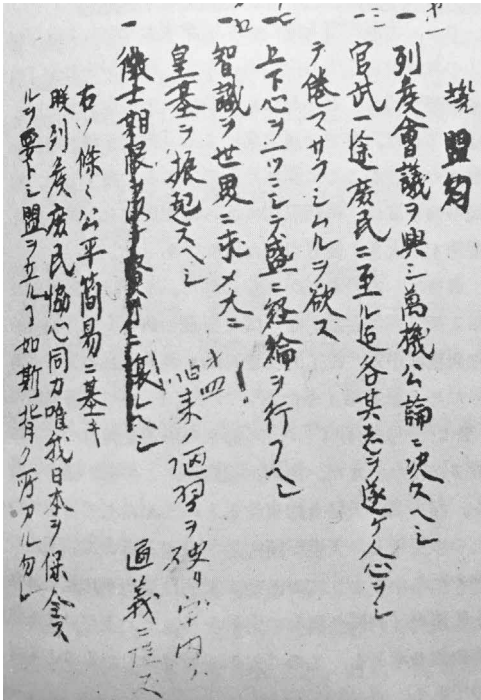 誓 盟約
一 列侯會議ヲ興シ萬機公論ニ決スヘシ
一 官武一途庶民ニ至ル迄各其志ヲ遂ケ人心ヲシ
テ倦マサラシムルヲ欲ス
一 上下心ヲ一ツニシテ盛ニ経綸ヲ行フヘシ
一 智識ヲ世界ニ求メ大ニ
皇基ヲ振起スヘシ
第四
旧来ノ陋習ヲ破リ宇内ノ
通義ニ従フ
一 徴士期限ヲ以テ賢才ニ譲ルヘシ
右ノ條々公平簡易ニ基キ
朕列侯庶民協心同力唯我日本ヲ保全ス
ルヲ要トシ盟ヲ立ルヿ如斯背ク所アル勿レ